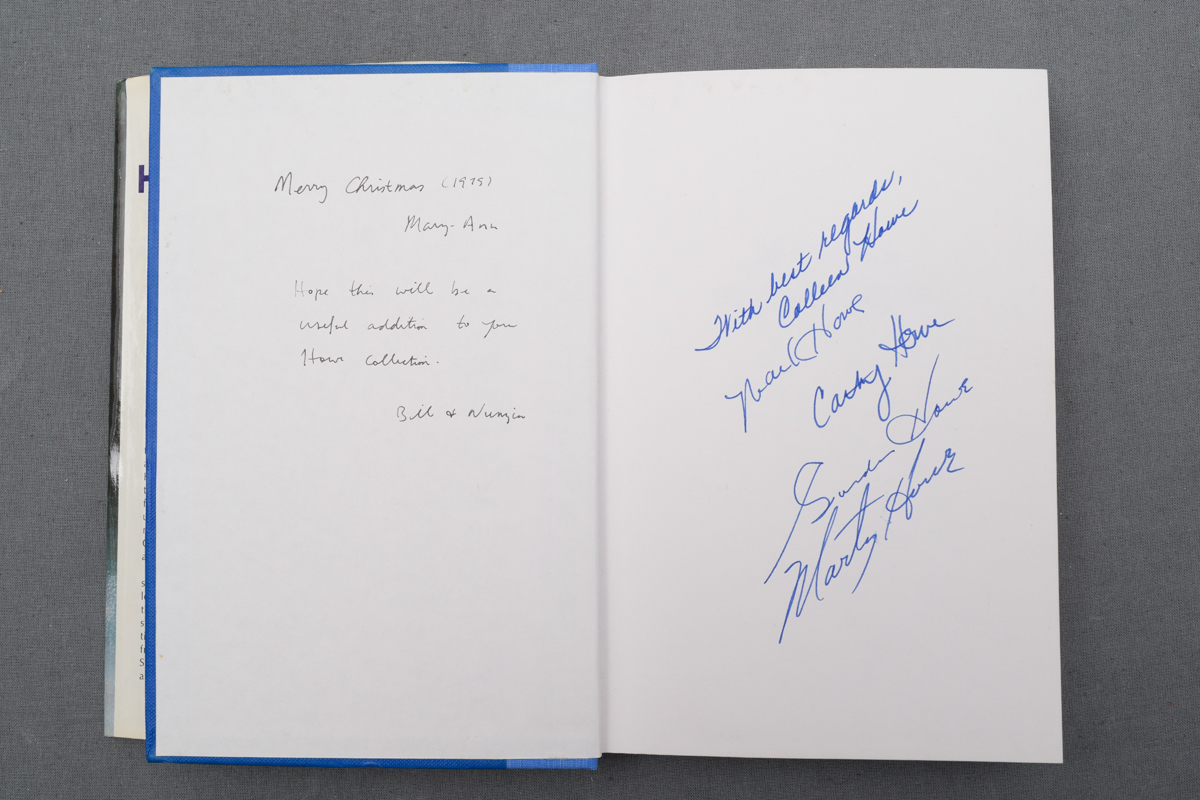 Merry Christmas (1975)
Mary-Ann
Hope this will be a
useful addition to you
Howe collection.
Bill & Nunzia
With best regards,
Colleen Howe
Mark Howe
Cathy Howe
Gordie Howe
Marty Howe
H